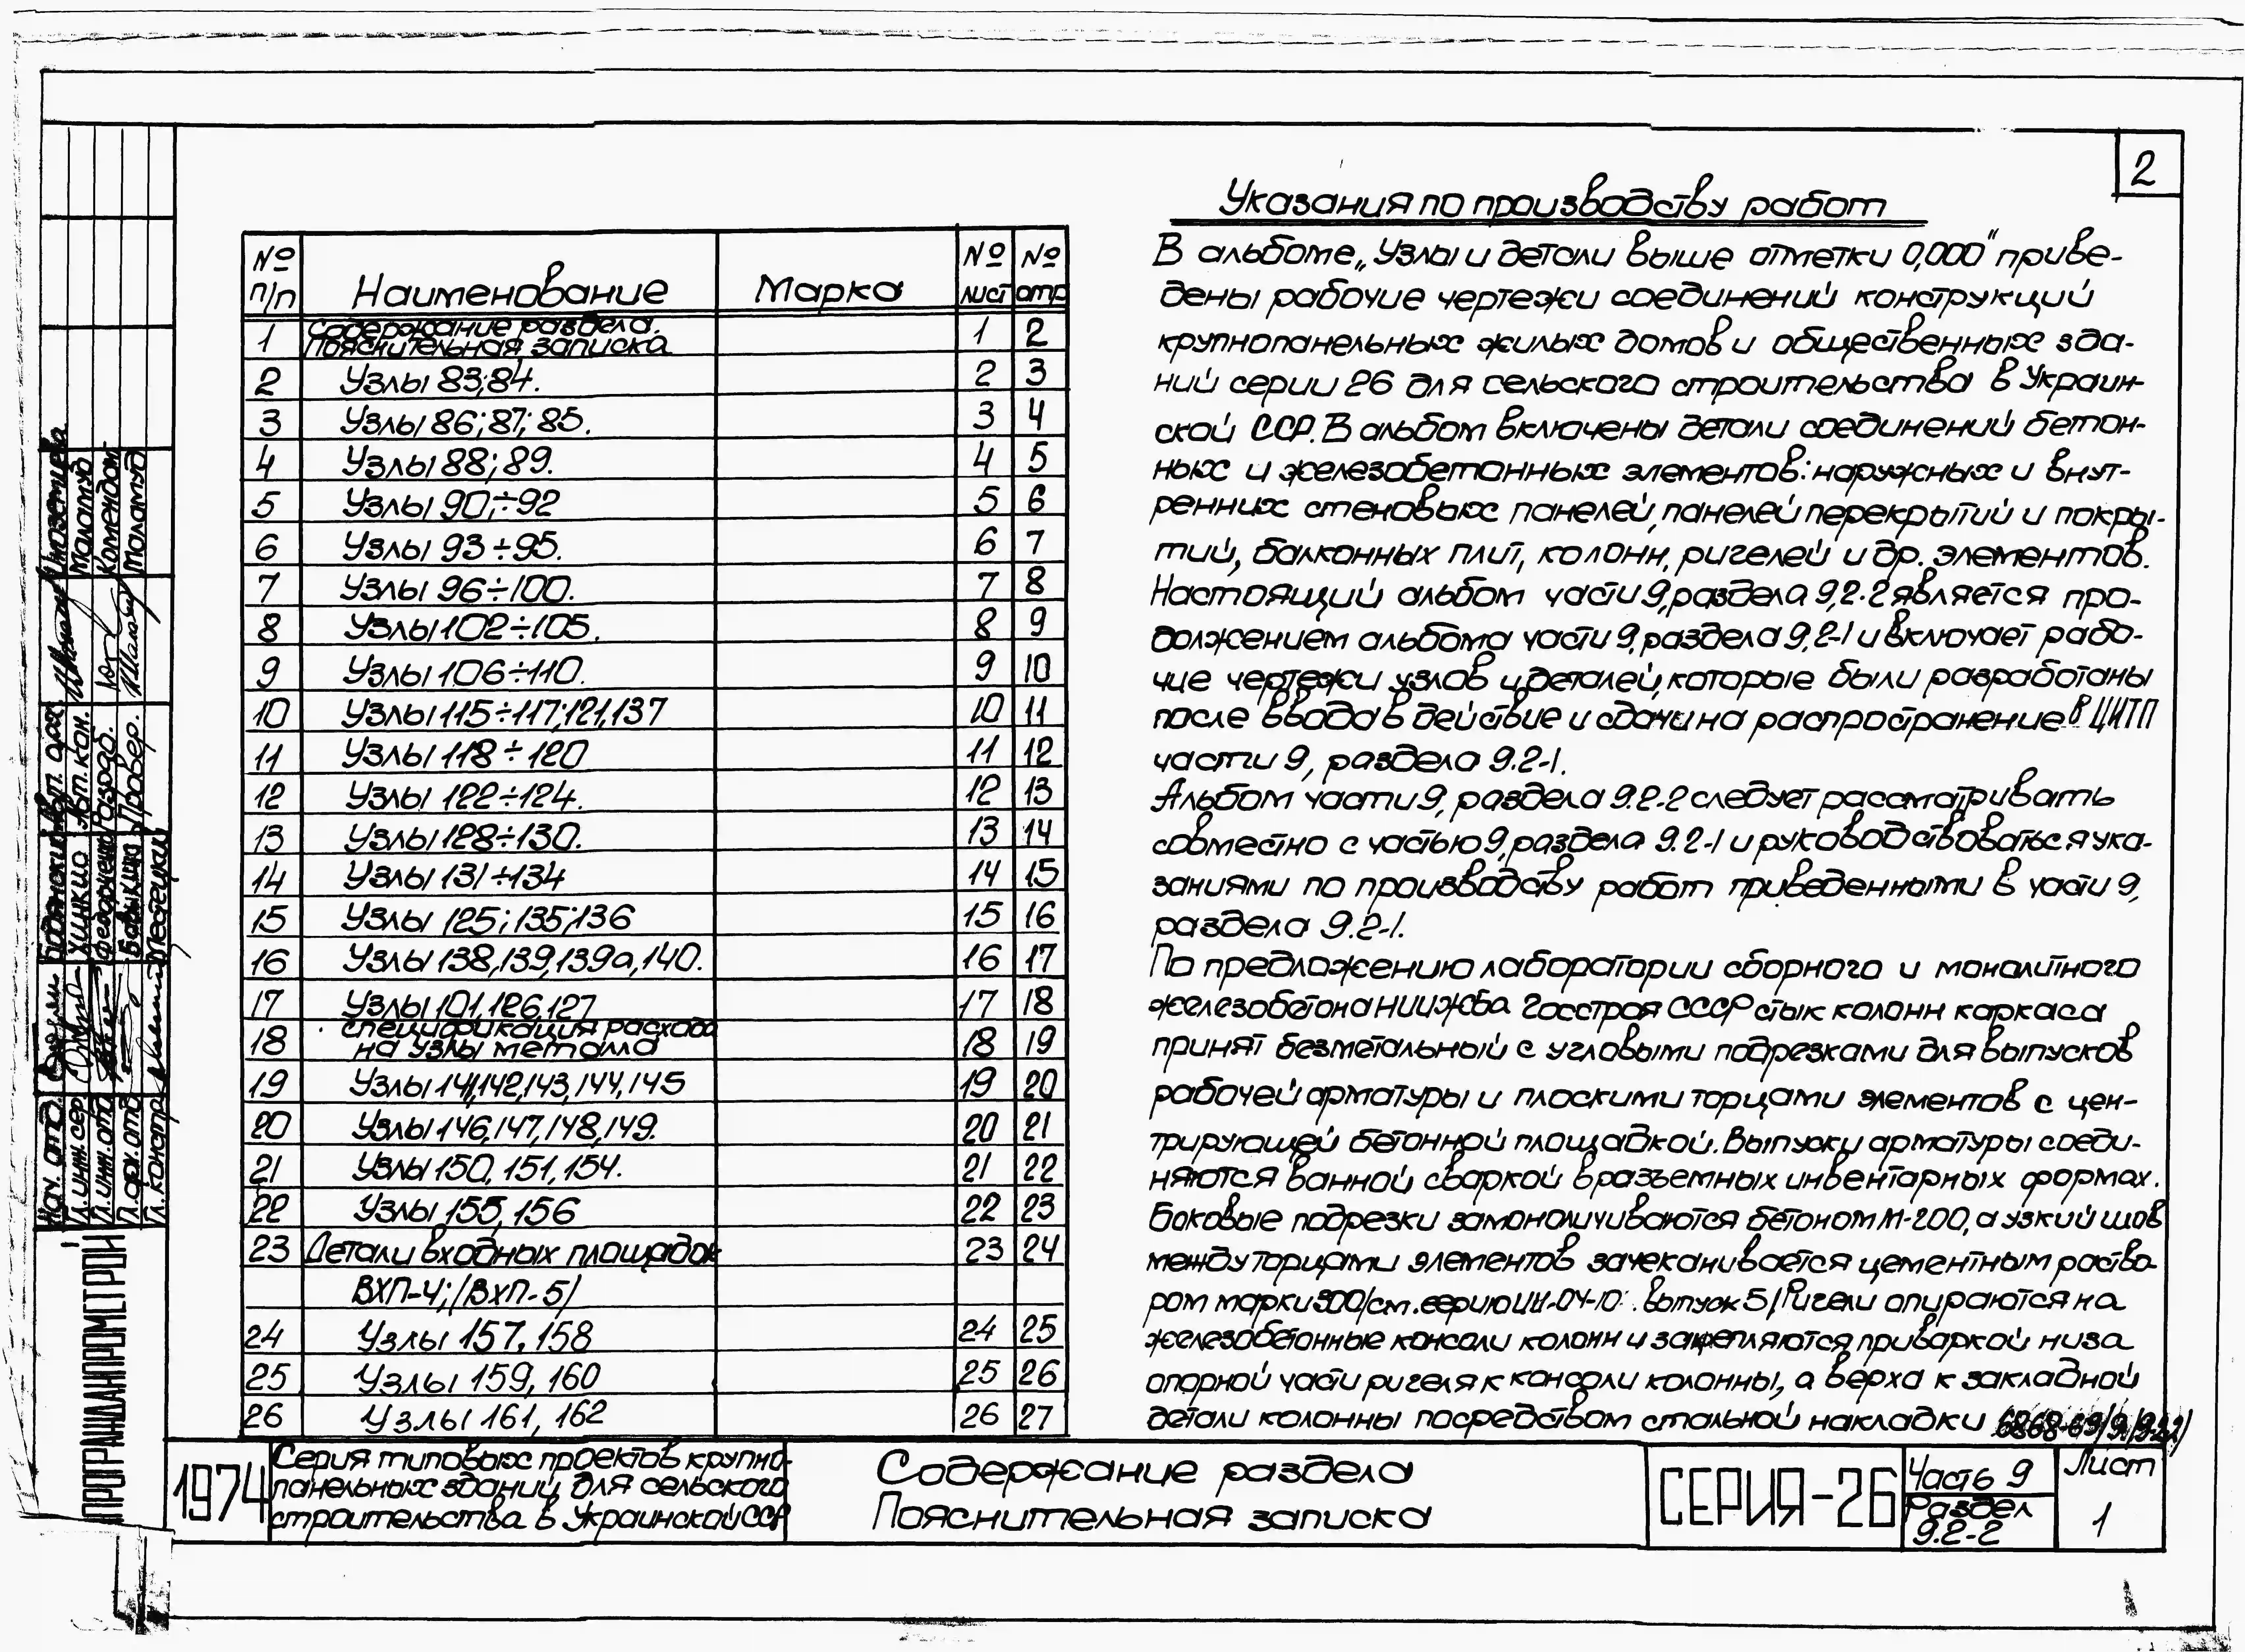 2
№ п/п Наименование Марка № лист № стр
1 Содержание раздела. Пояснительная записка 1 2
2 Узлы 83;84. 2 3
3 Узлы 86;87;85. 3 4
4 Узлы 88;89. 4 5
5 Узлы 90;÷92 5 6
6 Узлы 93÷95. 6 7
7 Узлы 96÷100. 7 8
8 Узлы 102÷105. 8 9
9 Узлы 106÷110. 9 10
10 Узлы 115÷117;121,137 10 11
11 Узлы 118÷120 11 12
12 Узлы 122÷124. 12 13
13 Узлы 128÷130. 13 14
14 Узлы 131÷134 14 15
15 Узлы 125;135;136 15 16
16 Узлы 138,139,139а,140. 16 17
17 Узлы 101,126,127 17 18
18 спецификация расхода на узлы металла 18 19
19 Узлы 141,142,143,144,145 19 20
20 Узлы 146,147,148,149. 20 21
21 Узлы 150,151,154. 21 22
22 Узлы 155,156 22 23
23 Детали входных площадок 23 24
ВХП-4;/ВХП-5/
24 Узлы 157,158 24 25
25 Узлы 159,160 25 26
26 Узлы 161,162 26 27
Указания по производству работ
В альбоме „Узлы и детали выше отметки 0,000" приве-
дены рабочие чертежи соединений конструкций
крупнопанельных жилых домов и общественных зда-
ний серии 26 для сельского строительства в Украин-
ской ССР. В альбом включены детали соединений бетон-
ных и железобетонных элементов: наружных и внут-
ренних стеновых панелей, панелей перекрытий и покры-
тий, балконных плит, колонн, ригелей и др. элементов.
Настоящий альбом части 9, раздела 9,2-2 является про-
должением альбома части 9, раздела 9,2-1 и включает рабо-
чие чертежи узлов и деталей, которые были разработаны
после ввода в действие и сдачи на распространение в ЦИТП
части 9, раздела 9.2-1.
Альбом части 9, раздела 9.2-2 следует рассматривать
совместно с частью 9, раздела 9.2-1 и руководствоваться ука-
заниями по производству работ приведенными в части 9,
раздела 9.2-1.
По предложению лаборатории сборного и монолитного
железобетона НИИЖБа Госстроя СССР стык колонн каркаса
принят безметальный с угловыми подрезками для выпусков
рабочей арматуры и плоскими торцами элементов с цен-
трирующей бетонной площадкой. Выпуски арматуры соеди-
няются ванной сваркой в разъемных инвентарных формах.
Боковые подрезки замоноличиваются бетоном М-200, а узкий шов
между торцами элементов зачеканивается цементным раство-
ром марки 300/см. серию ИИ-04-10. выпуск 5/ Ригели опираются на
железобетонные консоли колонн и закрепляются приваркой низа
опорной части ригеля к консоли колонны, а верха к закладной
детали колонны посредством стальной накладки
1974
Серия типовых проектов крупно-
панельных зданий для сельского
строительства в Украинской ССР
Содержание раздела
Пояснительная записка
СЕРИЯ-26
Часть 9
Раздел
9.2-2
Лист
1
Нач. отд.
Гл.инж.сер
Гл.инж.отд
Гл.арх.отд
Гл.констр.
Хинкис
Федорченко
Бавыкин
Местецкий
Авт. арх.
Авт. кон.
Разраб.
Провер.
Маламуд
Комендант
Маламуд